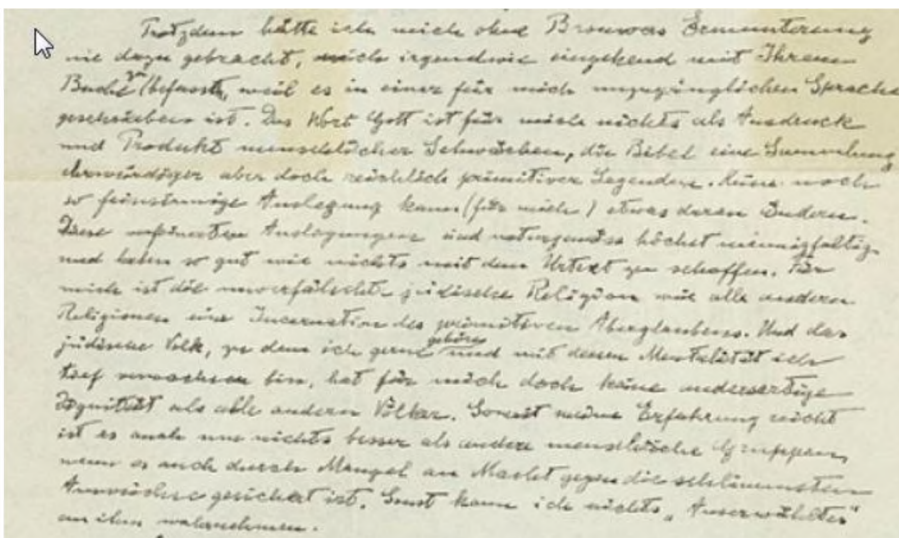 Trotzdem hätte ich mich ohne Brouwers Ermunterung
nie dazu gebracht, mich irgendwie eingehend mit Ihrem
Buche zu befassen, weil es in einer für mich unzugänglichen Sprache
geschrieben ist. Das Wort Gott ist für mich nichts als Ausdruck
und Produkt menschlicher Schwächen, die Bibel eine Sammlung
ehrwürdiger aber doch reichlich primitiver Legenden. Keine noch
so feinsinnige Auslegung kann (für mich) etwas daran ändern.
Diese verfeinerten Auslegungen sind naturgemäss höchst mannigfaltig
und haben so gut wie nichts mit dem Urtext zu schaffen. Für
mich ist die unverfälschte jüdische Religion wie alle anderen
Religionen eine Incarnation des primitiven Aberglaubens. Und das
jüdische Volk, zu dem ich gerne gehöre und mit dessen Mentalität ich
tief verwachsen bin, hat für mich doch keine andersartige
Dignität als alle anderen Völker. Soweit meine Erfahrung reicht
ist es auch um nichts besser als andere menschliche Gruppen,
wenn es auch durch Mangel an Macht gegen die schlimmsten
Auswüchse gesichert ist. Sonst kann ich nichts „Auserwähltes"
an ihm wahrnehmen.